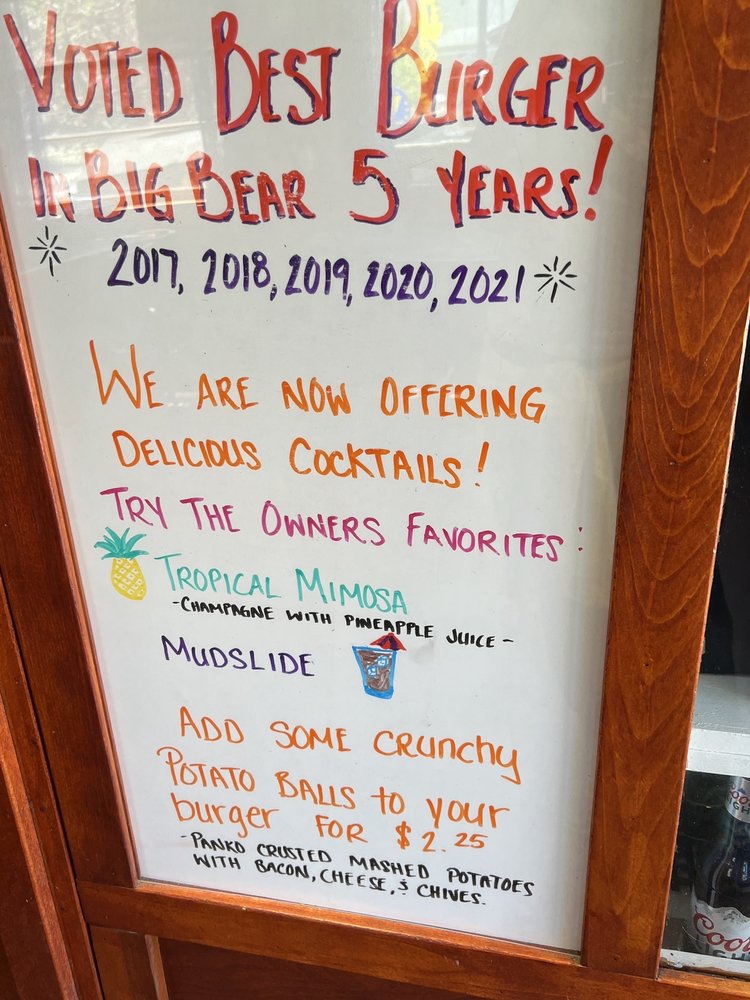 VOTED BEST BURGER
IN BIG BEAR 5 YEARS!
2017, 2018, 2019, 2020, 2021
WE ARE NOW OFFERING
DELICIOUS COCKTAILS!
TRY THE OWNERS FAVORITES:
TROPICAL MIMOSA
-CHAMPAGNE WITH PINEAPPLE JUICE-
MUDSLIDE
ADD SOME CRUNCHY
POTATO BALLS to your
burger FOR $2.25
-PANKO CRUSTED MASHED POTATOES
WITH BACON, CHEESE, & CHIVES.
Coors